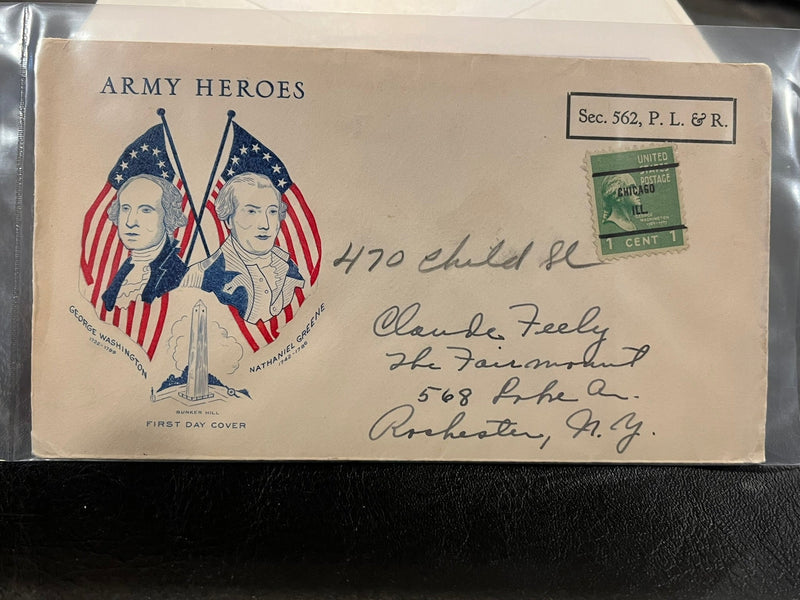 ARMY HEROES
Sec. 562, P. L. & R.
UNITED
STATES
POSTAGE
CHICAGO
ILL.
WASHINGTON
1 CENT 1
470 Child St
Claude Feely
The Fairmount
568 Lake Av.
Rochester, N. Y.
GEORGE WASHINGTON
1732-1799
NATHANIEL GREENE
1742-1786
BUNKER HILL
FIRST DAY COVER